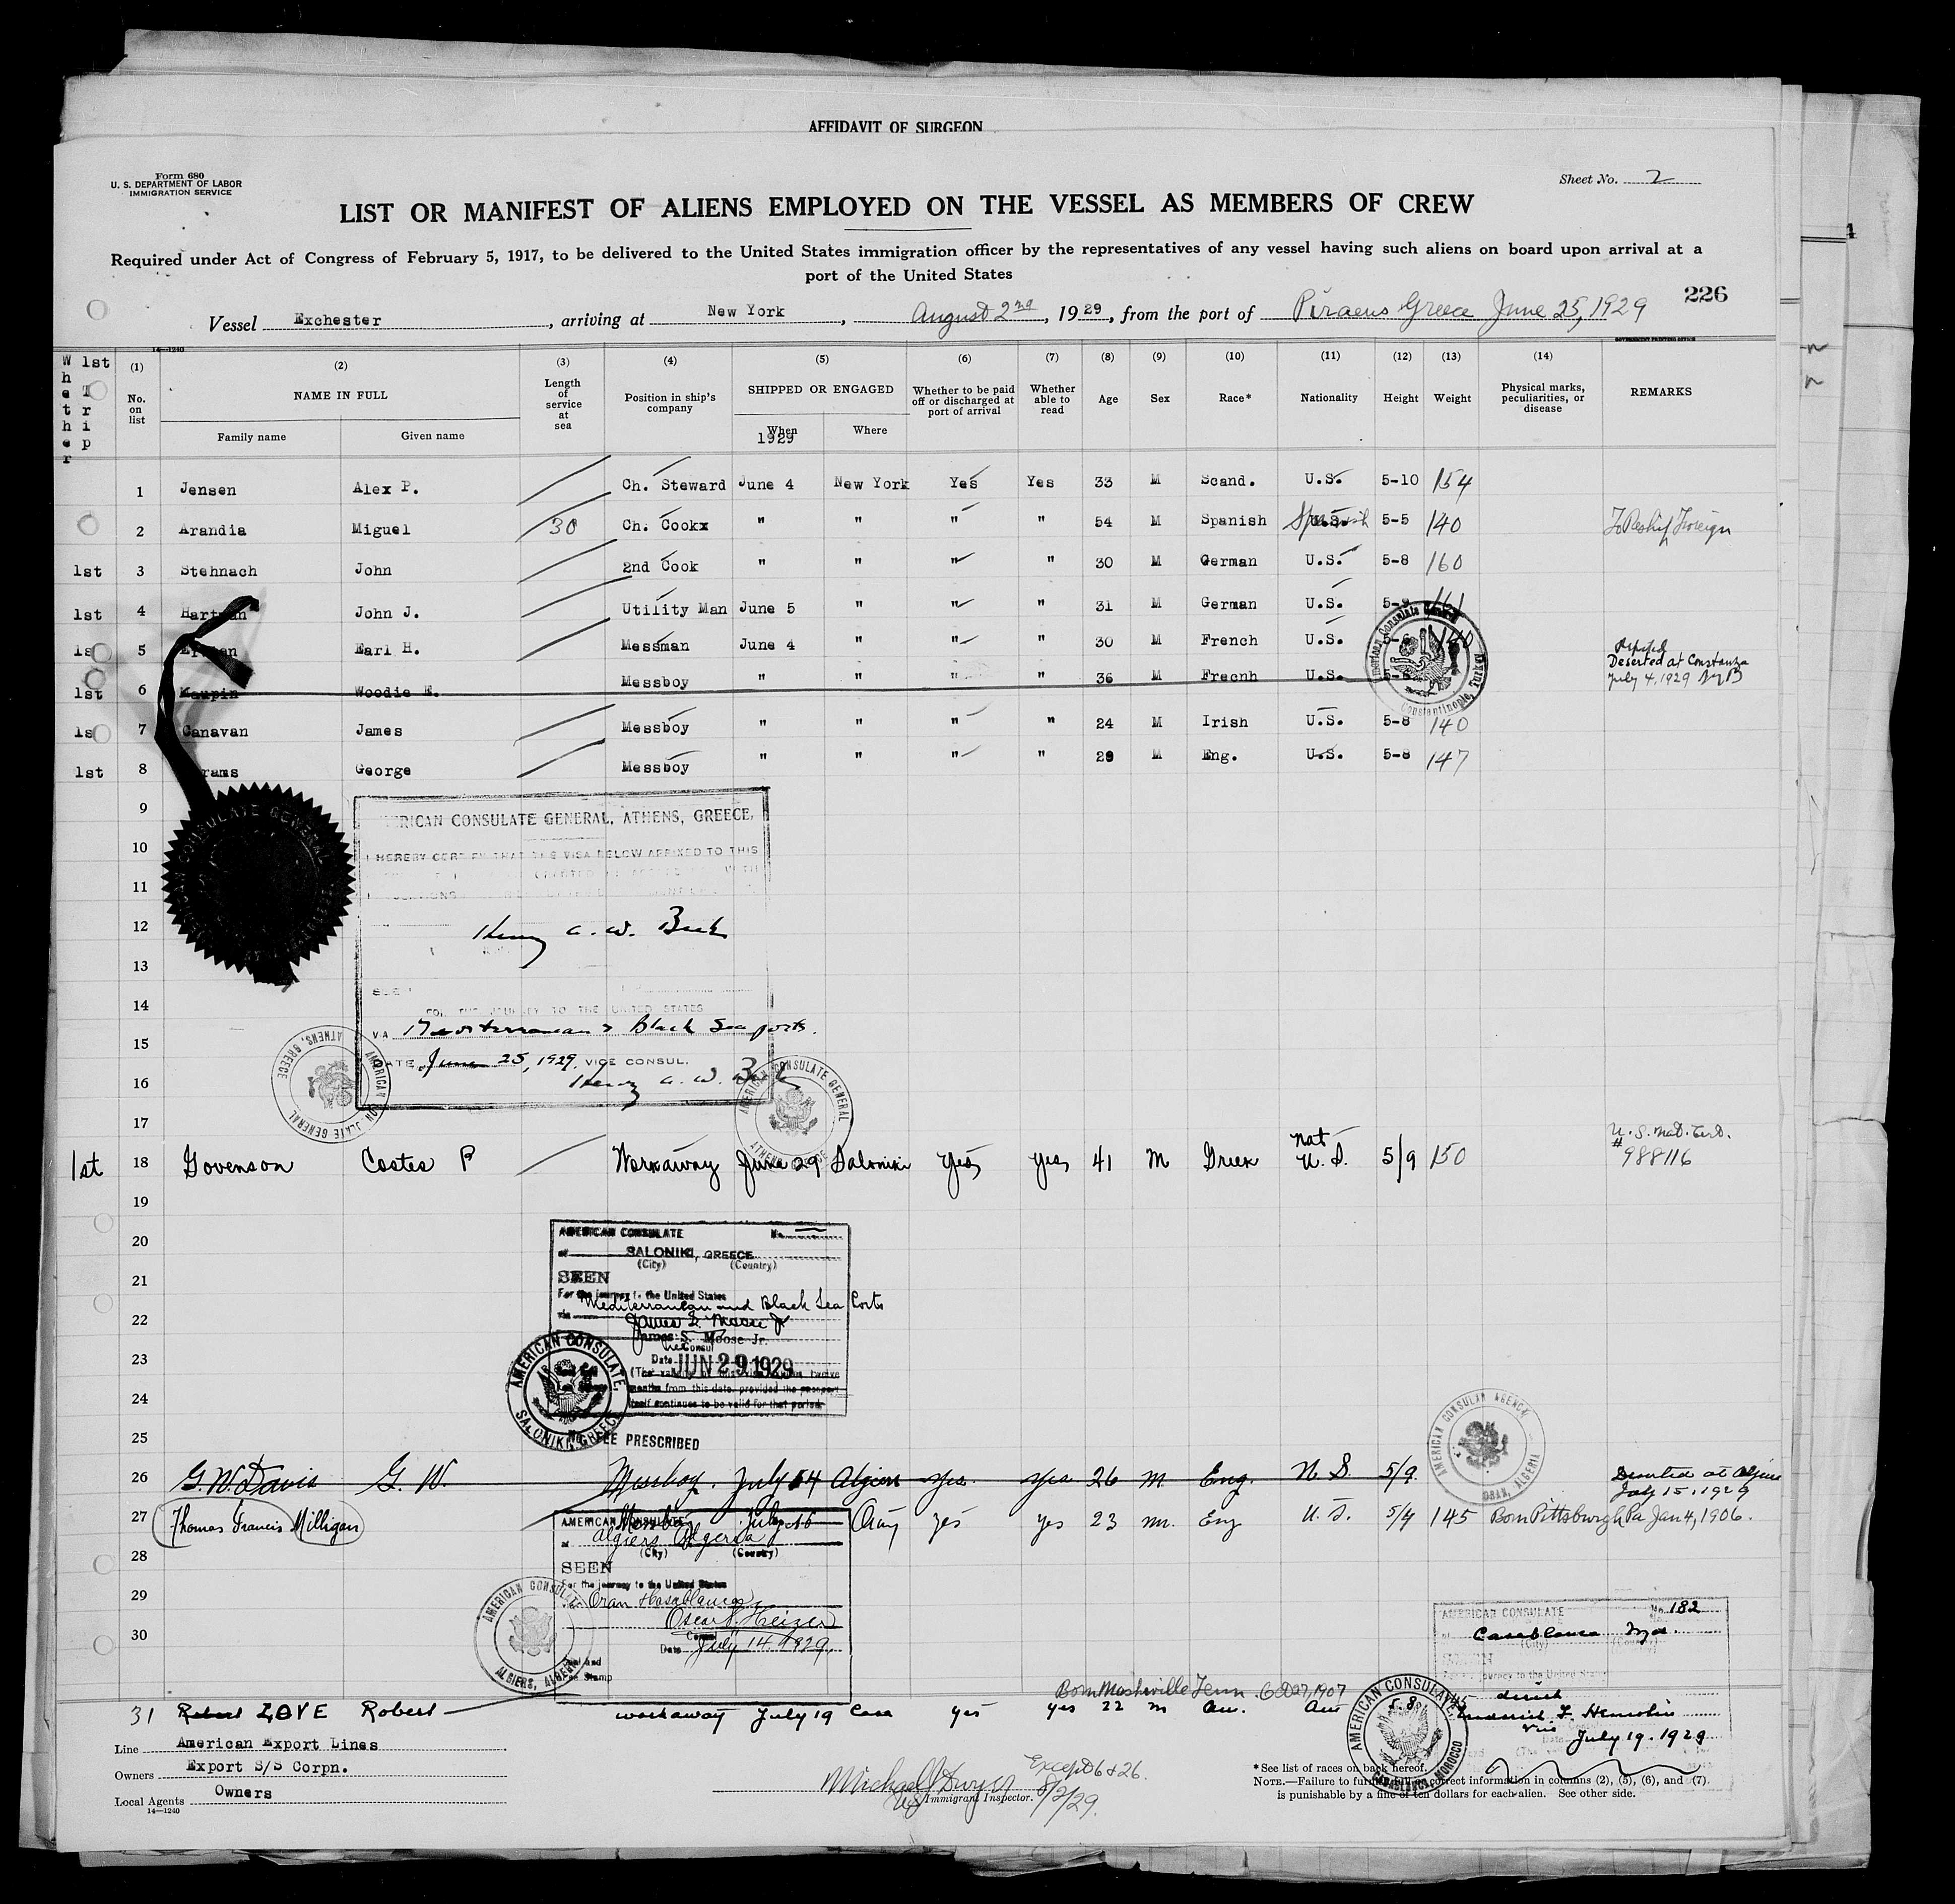 AFFIDAVIT OF SURGEON
Form 680
U. S. DEPARTMENT OF LABOR
IMMIGRATION SERVICE
Sheet No. 2
LIST OR MANIFEST OF ALIENS EMPLOYED ON THE VESSEL AS MEMBERS OF CREW
Required under Act of Congress of February 5, 1917, to be delivered to the United States immigration officer by the representatives of any vessel having such aliens on board upon arrival at a
port of the United States
226
Vessel Exchester, arriving at New York, August 2nd, 1929, from the port of Piraeus Greece June 25, 1929
14—1240
GOVERNMENT PRINTING OFFICE
Whether 1st Trip
(1) No. on list
(2) NAME IN FULL
Family name Given name
(3) Length of service at sea
(4) Position in ship's company
(5) SHIPPED OR ENGAGED
When 1929 Where
(6) Whether to be paid off or discharged at port of arrival
(7) Whether able to read
(8) Age
(9) Sex
(10) Race*
(11) Nationality
(12) Height
(13) Weight
(14) Physical marks, peculiarities, or disease
REMARKS
1 Jensen Alex P. Ch. Steward June 4 New York Yes Yes 33 M Scand. U.S. 5-10 154
2 Arandia Miguel 30 Ch. Cookx " " " " 54 M Spanish U.S. Spanish 5-5 140 To Reship Foreign
1st 3 Stehnach John 2nd Cook " " " " 30 M German U.S. 5-8 160
1st 4 Hartman John J. Utility Man June 5 " " " 31 M German U.S. 161
1st 5 Earl H. Messman June 4 " " " 30 French U.S. 5-6 140
1st 6 Maupin Woodie E. Messboy " " " " 36 M Frecnh U.S. Deserted at Constanza
July 4, 1929
1st 7 Canavan James Messboy " " " " 24 M Irish U.S. 5-8 140
1st 8 rams George Messboy " " " " 29 M Eng. U.S. 5-8 147
American Consulate General
Constantinople, Turkey
9
10
11
12
13
14
15
16
17
AMERICAN CONSULATE GENERAL
ERICAN CONSULATE GENERAL, ATHENS, GREECE,
I HEREBY CERTIFY THAT THE VISA BELOW AFFIXED TO THIS
Henry A. W. Beck
SEEN
FOR THE JOURNEY TO THE UNITED STATES
VIA Mediterranean & Black Sea ports.
DATE June 25, 1929, VICE CONSUL.
Henry A. W. Beck
AMERICAN CONSULATE GENERAL
ATHENS, GREECE
AMERICAN CONSULATE GENERAL
ATHENS, GREECE
1st 18 Govenson Costes P Workaway June 29 Saloniki Yes Yes 41 M Greek Nat U. S. 5/9 150 U. S. Nat. Cert.
# 988116
19
20
21
22
23
24
25
AMERICAN CONSULATE No.
at SALONIKI, GREECE
(City) (Country)
SEEN
For the journey to the United States
via Mediterranean and Black Sea Ports
James S. Moose Jr
James S. Moose Jr.
Vice Consul
Date JUN 29 1929
(The validity of this visa expires twelve
months from this date provided the passport
itself continues to be valid for that period
AMERICAN CONSULATE
SALONIKI, GREECE
No FEE PRESCRIBED
AMERICAN CONSULAR AGENCY
ORAN, ALGERIA
26 G. W. Davis G. W. Messboy. July 14 Algiers Yes. Yes 26 M. Eng. U. S. 5/9. Deserted at Algiers
July 15, 1929
27 Thomas Francis Milligan Messboy July 16 Oran yes yes 23 m. Eng U. S. 5/4 145 Born Pittsburgh Pa Jan 4, 1906.
28
29
30
AMERICAN CONSULATE
at Algiers Algeria
(City) (Country)
SEEN
For the journey to the United States
via Oran + Casablanca
Oscar S. Heizer
Consul
Date July 14 1929.
Seal and
Fee Stamp
AMERICAN CONSULATE
ALGIERS, ALGERIA
AMERICAN CONSULATE No. 182
at Casablanca
(City) (Country)
SEEN
For the journey to the United States
direct
July 19. 1929
AMERICAN CONSULATE
CASABLANCA, MOROCCO
Born Nashville Tenn. Oct 27, 1907
31 Robert LOVE Robert workaway July 19 Casa yes yes 22 m Am. Am 5.8
Line American Export Lines
Owners Export S/S Corpn.
Local Agents Owners
14—1240
Michael Dwyer
Immigrant Inspector.
Except 6 & 26.
8/2/29.
*See list of races on back hereof.
NOTE.—Failure to furnish full or correct information in columns (2), (5), (6), and (7).
is punishable by a fine of ten dollars for each alien. See other side.